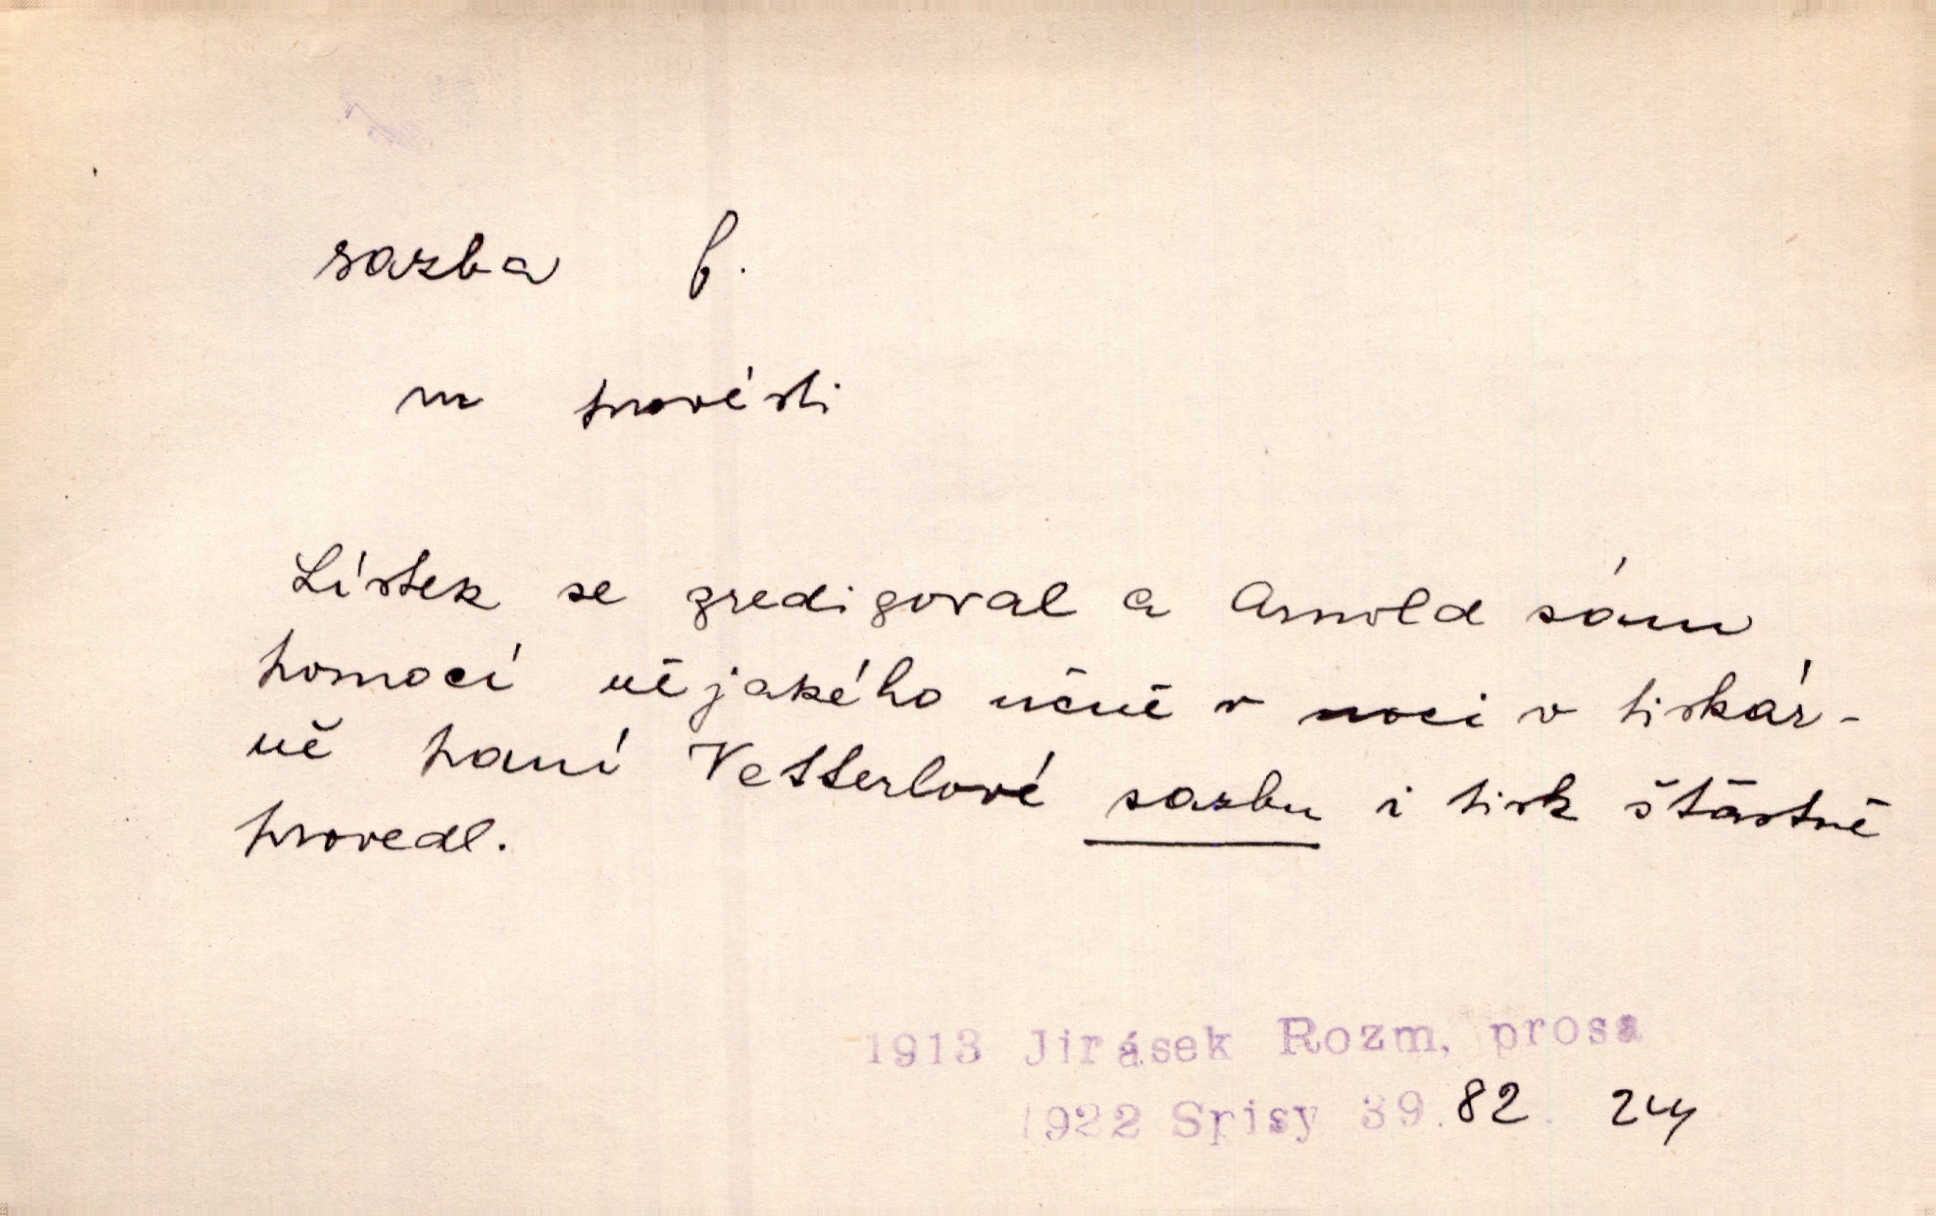 sazba f.
m provésti
Lístek se zredigoval a Arnold sám
pomocí nějakého učně v noci v tiskár-
ně paní Vetterlové sazbu i tisk štastně
provedl.
1913 Jirásek Rozm, prosa
1922 Spisy 39.82. 24